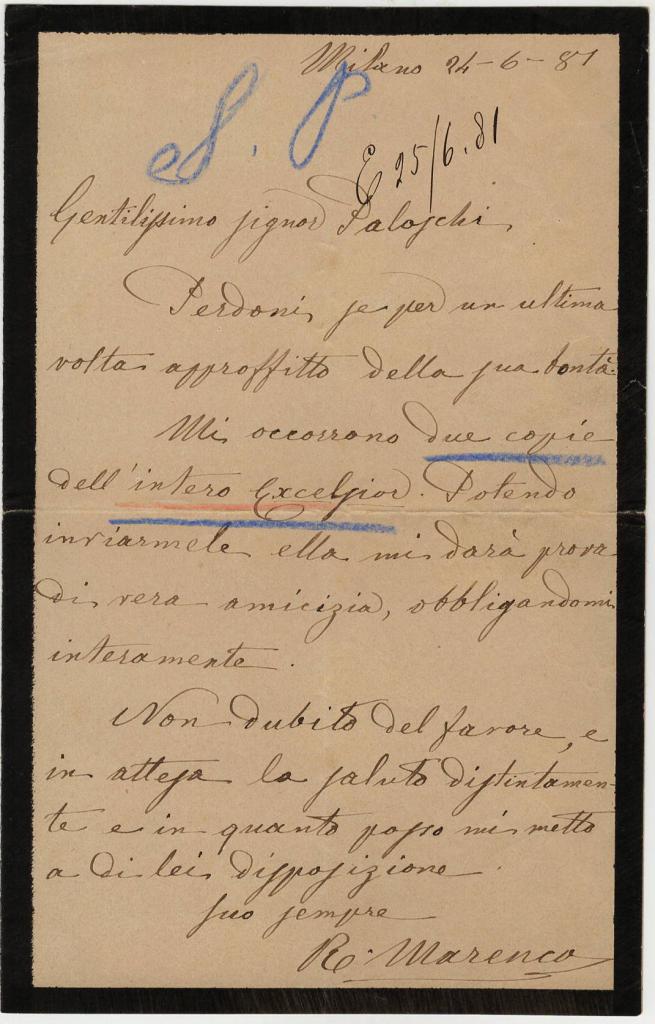 Milano 24-6-81
S. P
E 25/6.81
Gentilissimo signor Paloschi
Perdoni, se per un ultima
volta approffitto della sua bontà.
Mi occorrono due copie
dell'intero Excelsior. Potendo
inviarmele ella mi darà prova
di vera amicizia, obbligandomi
interamente.
Non dubito del favore, e
in attesa la saluto distintamen-
te e in quanto posso mi metto
a di lei disposizione.
suo sempre
R. Marenco